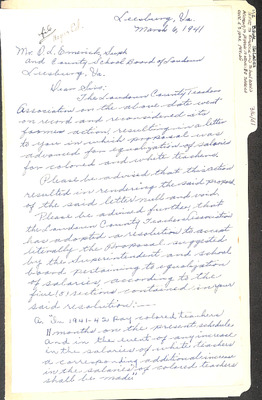 Leesburg, Va.
March 6, 1941
Mr. O. L. Emerick, Supt.
And County School Board of Loudoun
Leesburg, Va.
Dear Sirs:
The Loudoun County Teachers
Association on the above date met
on record and reconsidered its
former action, resulting in a letter
to you in which proposal was
advanced for equalization of salaries
for colored and white teachers.
Please be advised that this action
resulted in rendering the said proposal
of the said letter null and void.
Please be advised further, that
the Loudoun County Teachers Association
has adopted a resolution to accept
the proposal suggested
by the Superintendent and school
board pertaining to equalization
of salaries, according to the
five (5) sections contained in your
said resolution:—
"In 1941-42 pay colored teachers
months on the present schedule,
and in the event of any increase
in the salaries of white teachers
a corresponding additional increase
in the salaries of colored teachers
shall be made"